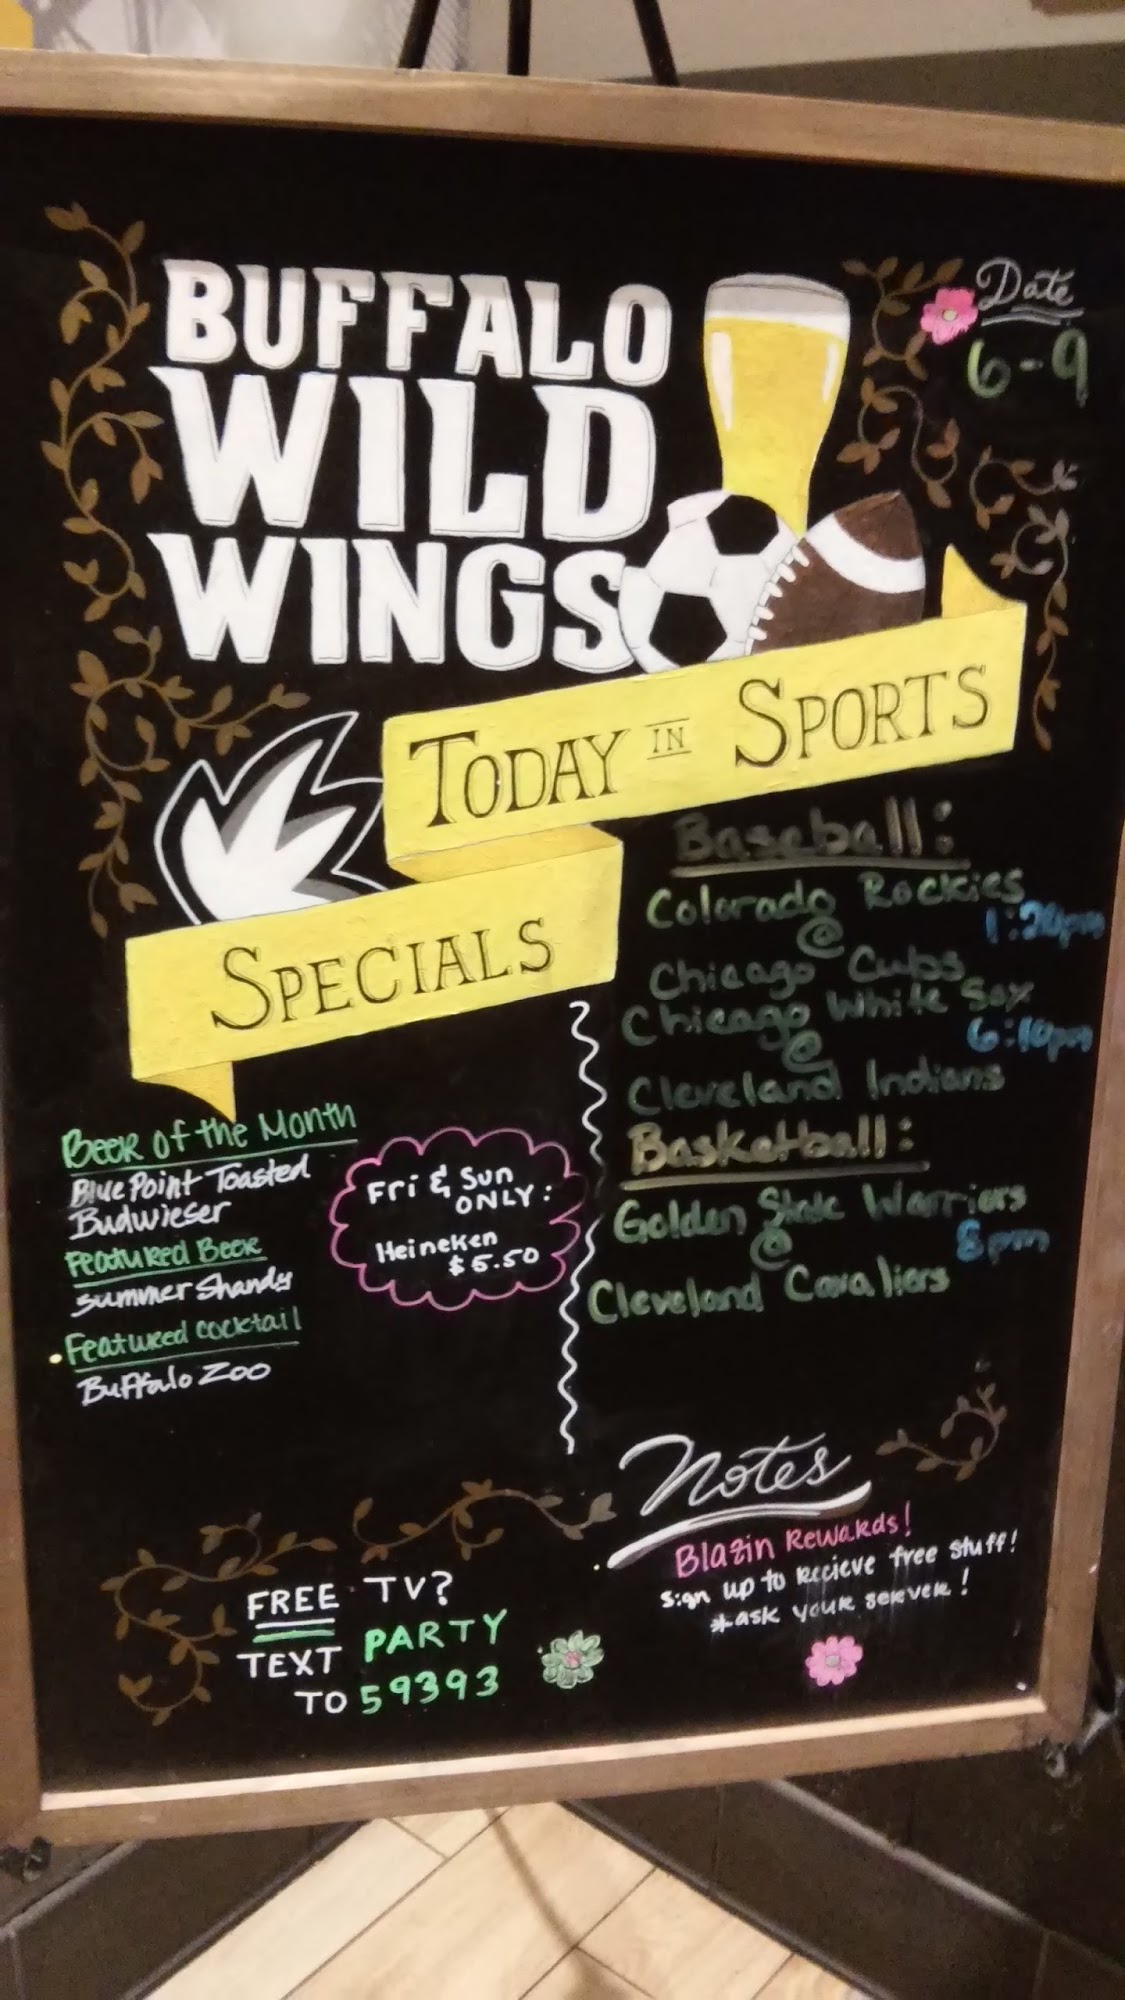 BUFFALO
WILD
WINGS
Date
6-9
TODAY IN SPORTS
SPECIALS
Beer of the Month
Blue Point Toasted
Budwieser
Featured Beer
Summer Shandy
Featured Cocktail
Buffalo Zoo
Fri & Sun
ONLY:
Heineken
$5.50
Baseball:
Colorado Rockies
@ 1:20pm
Chicago Cubs
Chicago White Sox
@ 6:10pm
Cleveland Indians
Basketball:
Golden State Warriors
@ 8pm
Cleveland Cavaliers
Notes
Blazin Rewards!
Sign up to recieve free stuff!
*ask your server!
FREE TV?
TEXT PARTY
TO 59393